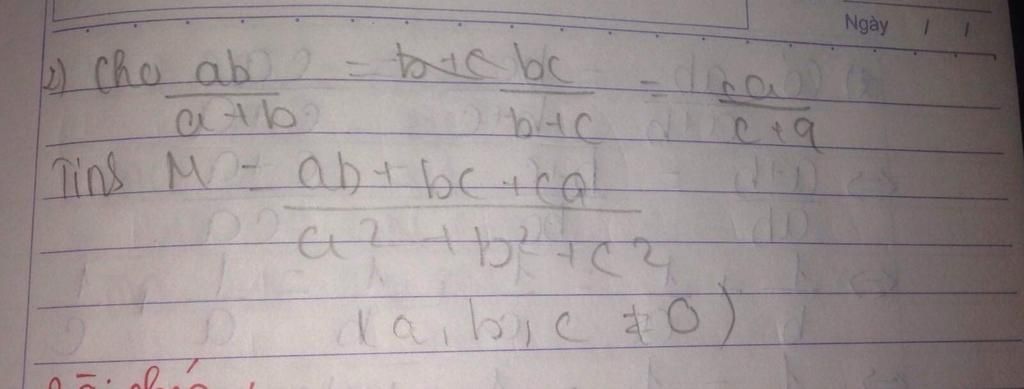 Ngày / /
2) Cho ab/a+b = bc/b+c = ca/c+a
Tính M = ab + bc + ca/a² + b² + c²
(a, b, c ≠ 0)